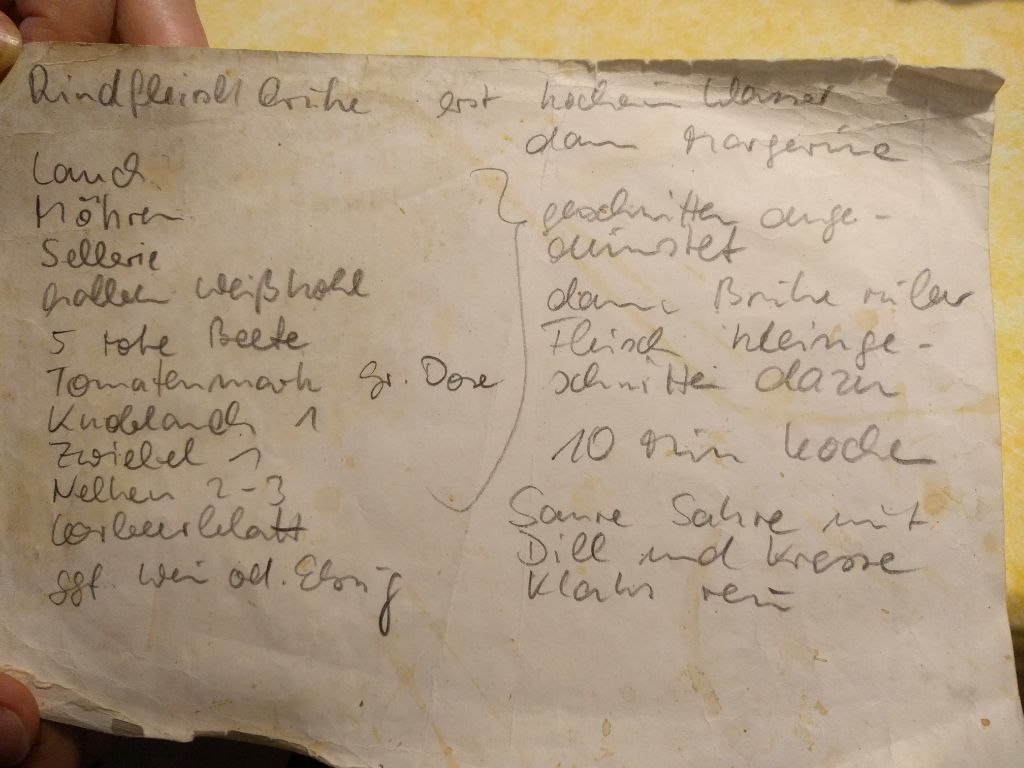 Rindfleisch Brühe erst kochen in Wasser
dann Margerine
Lauch
Möhren
Sellerie
halben Weißkohl
5 rote Beete
Tomatenmark gr. Dose
Knoblauch 1
Zwiebel 1
Nelken 2-3
Lorbeerblatt
ggf. Wein od. Essig
geschnitten ange-
dünstet
dann Brühe rüber
Fleisch kleinge-
schnitten dazu
10 Min kochen
Saure Sahne mit
Dill und Kresse
Klaks rein